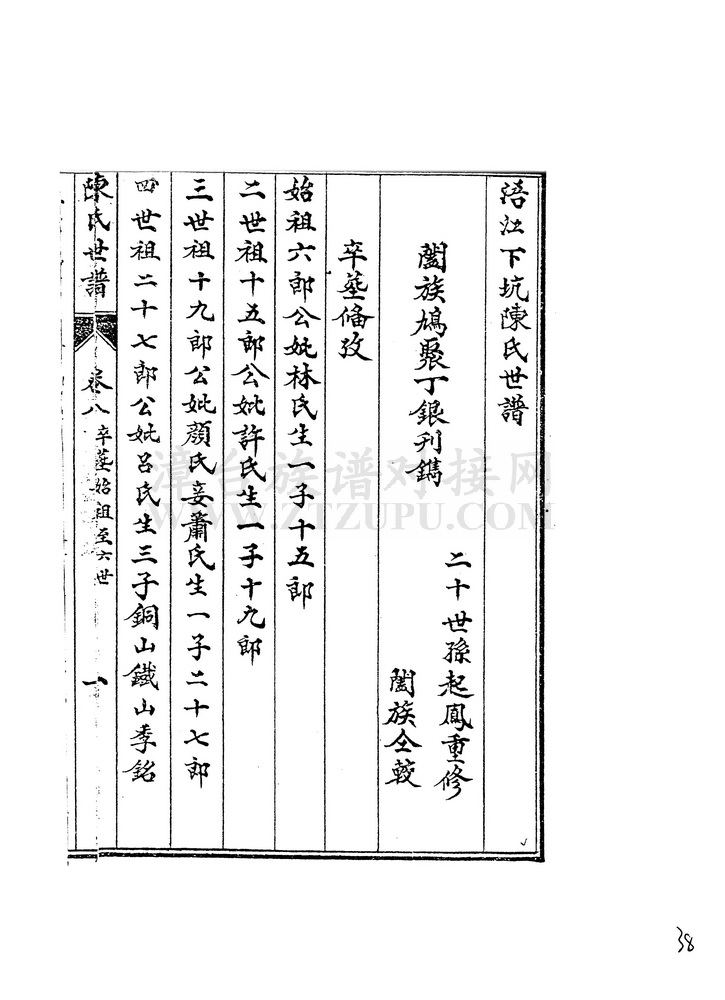 浯江下坑陳氏世譜
闔族鳩聚丁銀刋鐫
二十世孫起鳳重修
闔族仝較
卒塟俻攷
始祖六郎公妣林氏生一子十五郎
二世祖十五郎公妣許氏生一子十九郎
三世祖十九郎公妣顏氏妾蕭氏生一子二十七郎
四世祖二十七郎公妣呂氏生三子銅山鐵山季銘
陳氏世譜 卷八 卒塟始祖至六世 一
漳台族谱对接网
WWW.ZTZUPU.COM
38